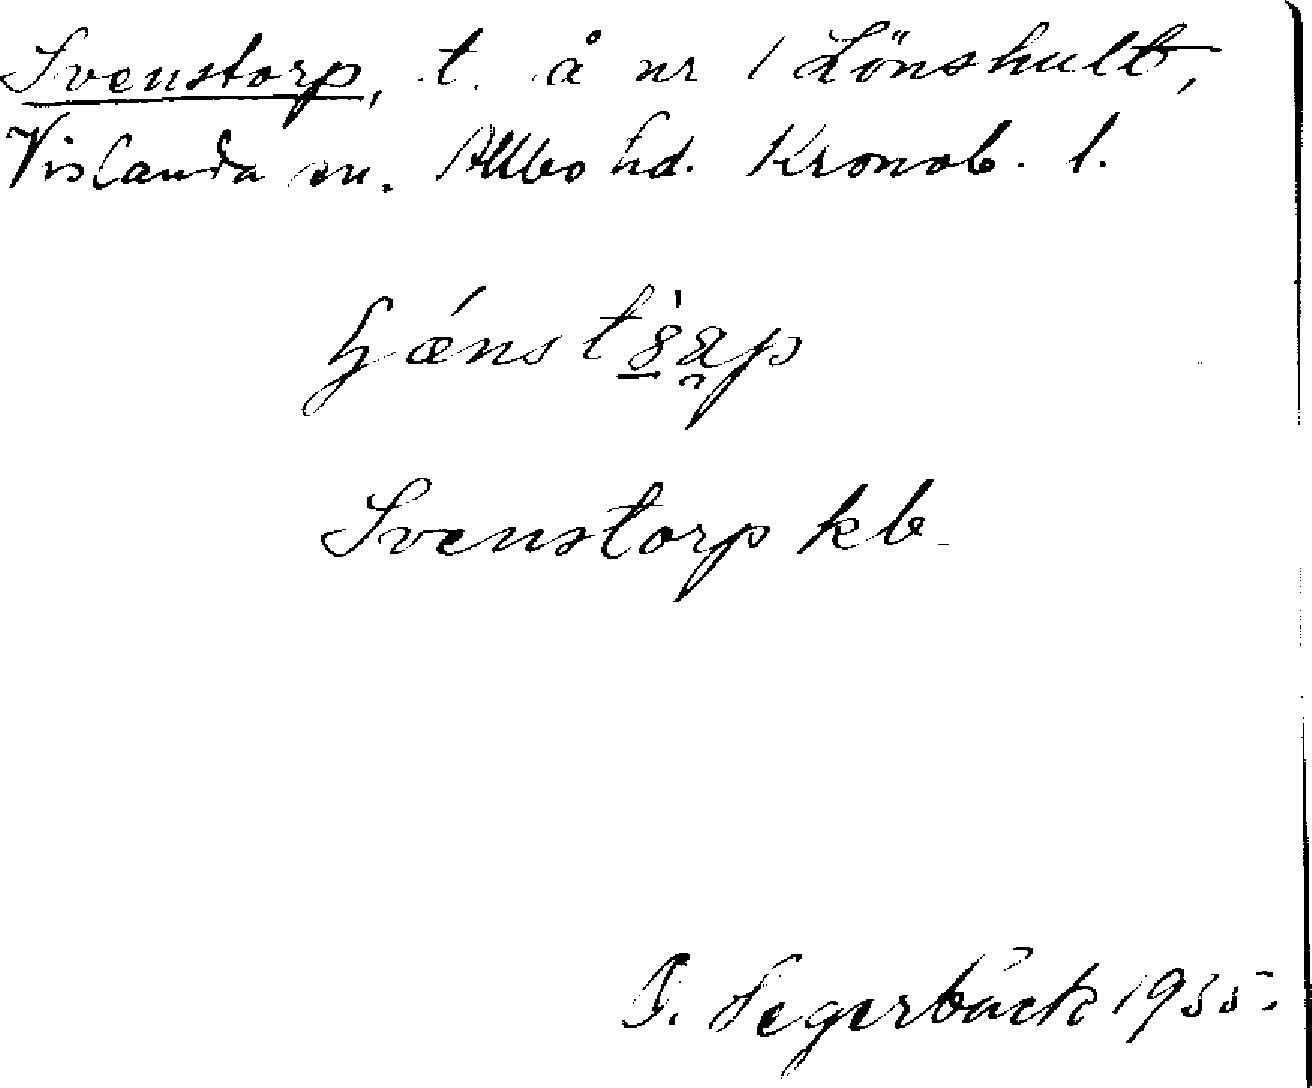 Svenstorp, t. å nr 1 Lönshult,
Vislanda sn. Allbo hd. Kronob. l.
Svenstorp kb.
B. Segerbäck 1935.